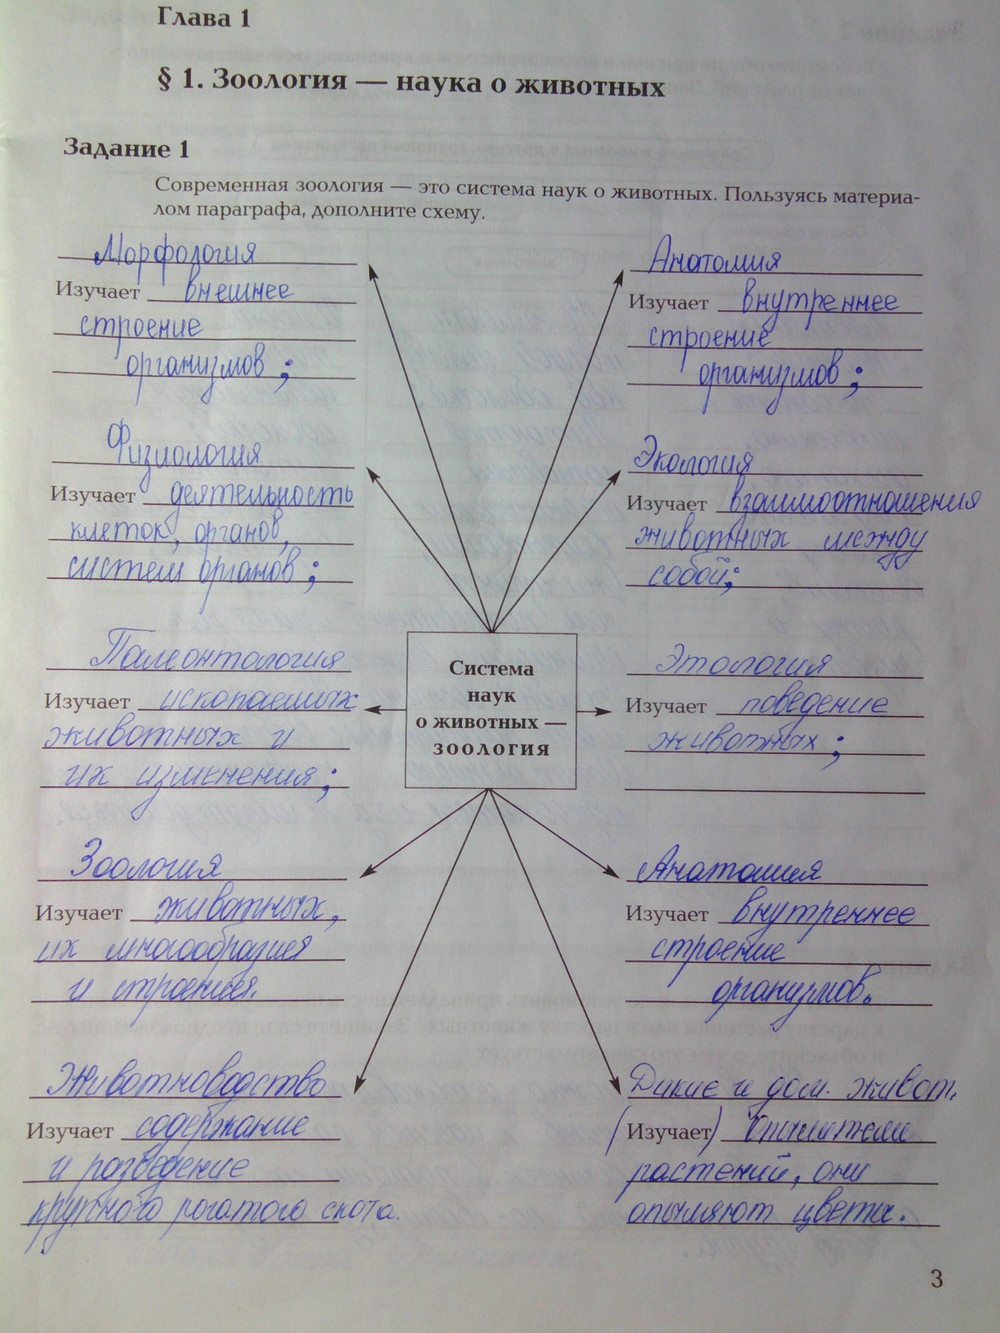 Глава 1
§ 1. Зоология — наука о животных
Задание 1
Современная зоология — это система наук о животных. Пользуясь материа-
лом параграфа, дополните схему.
Морфология
Изучает внешнее
строение
организмов;
Анатомия
Изучает внутреннее
строение
организмов;
Физиология
Изучает деятельность
клеток, органов,
систем органов;
Экология
Изучает взаимоотношения
животных между
собой;
Палеонтология
Изучает ископаемых
животных и
их изменения;
Система
наук
о животных —
зоология
Этология
Изучает поведение
животных;
Зоология
Изучает животных,
их многообразия
и строения.
Анатомия
Изучает внутреннее
строение
организмов.
Животноводство
Изучает содержание
и розведение
крупного рогатого скота.
Дикие и дом. живот.
(Изучает) опылители
растений, они
опыляют цветы.
3